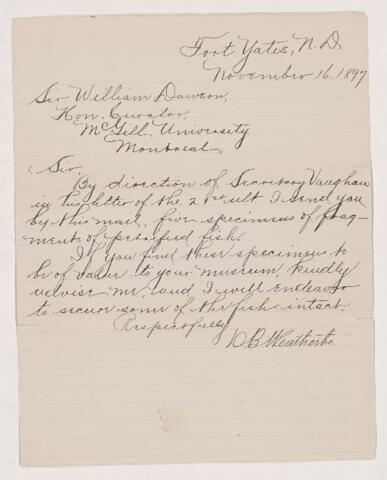 Fort Yates, N.D.
November 16. 1897
Sir William Dawson,
Hon. Curator,
McGill University
Montreal.
Sir,
By direction of Secretary Vaughan
in his letter of the ult I send you
by this mail, five specimens of frag-
ments of petrified fish.
If you find these specimens to
be of value to your museum, kindly
advise me, and I will endeavor
to secure some of the fish intact.
Respectfully
D. B.